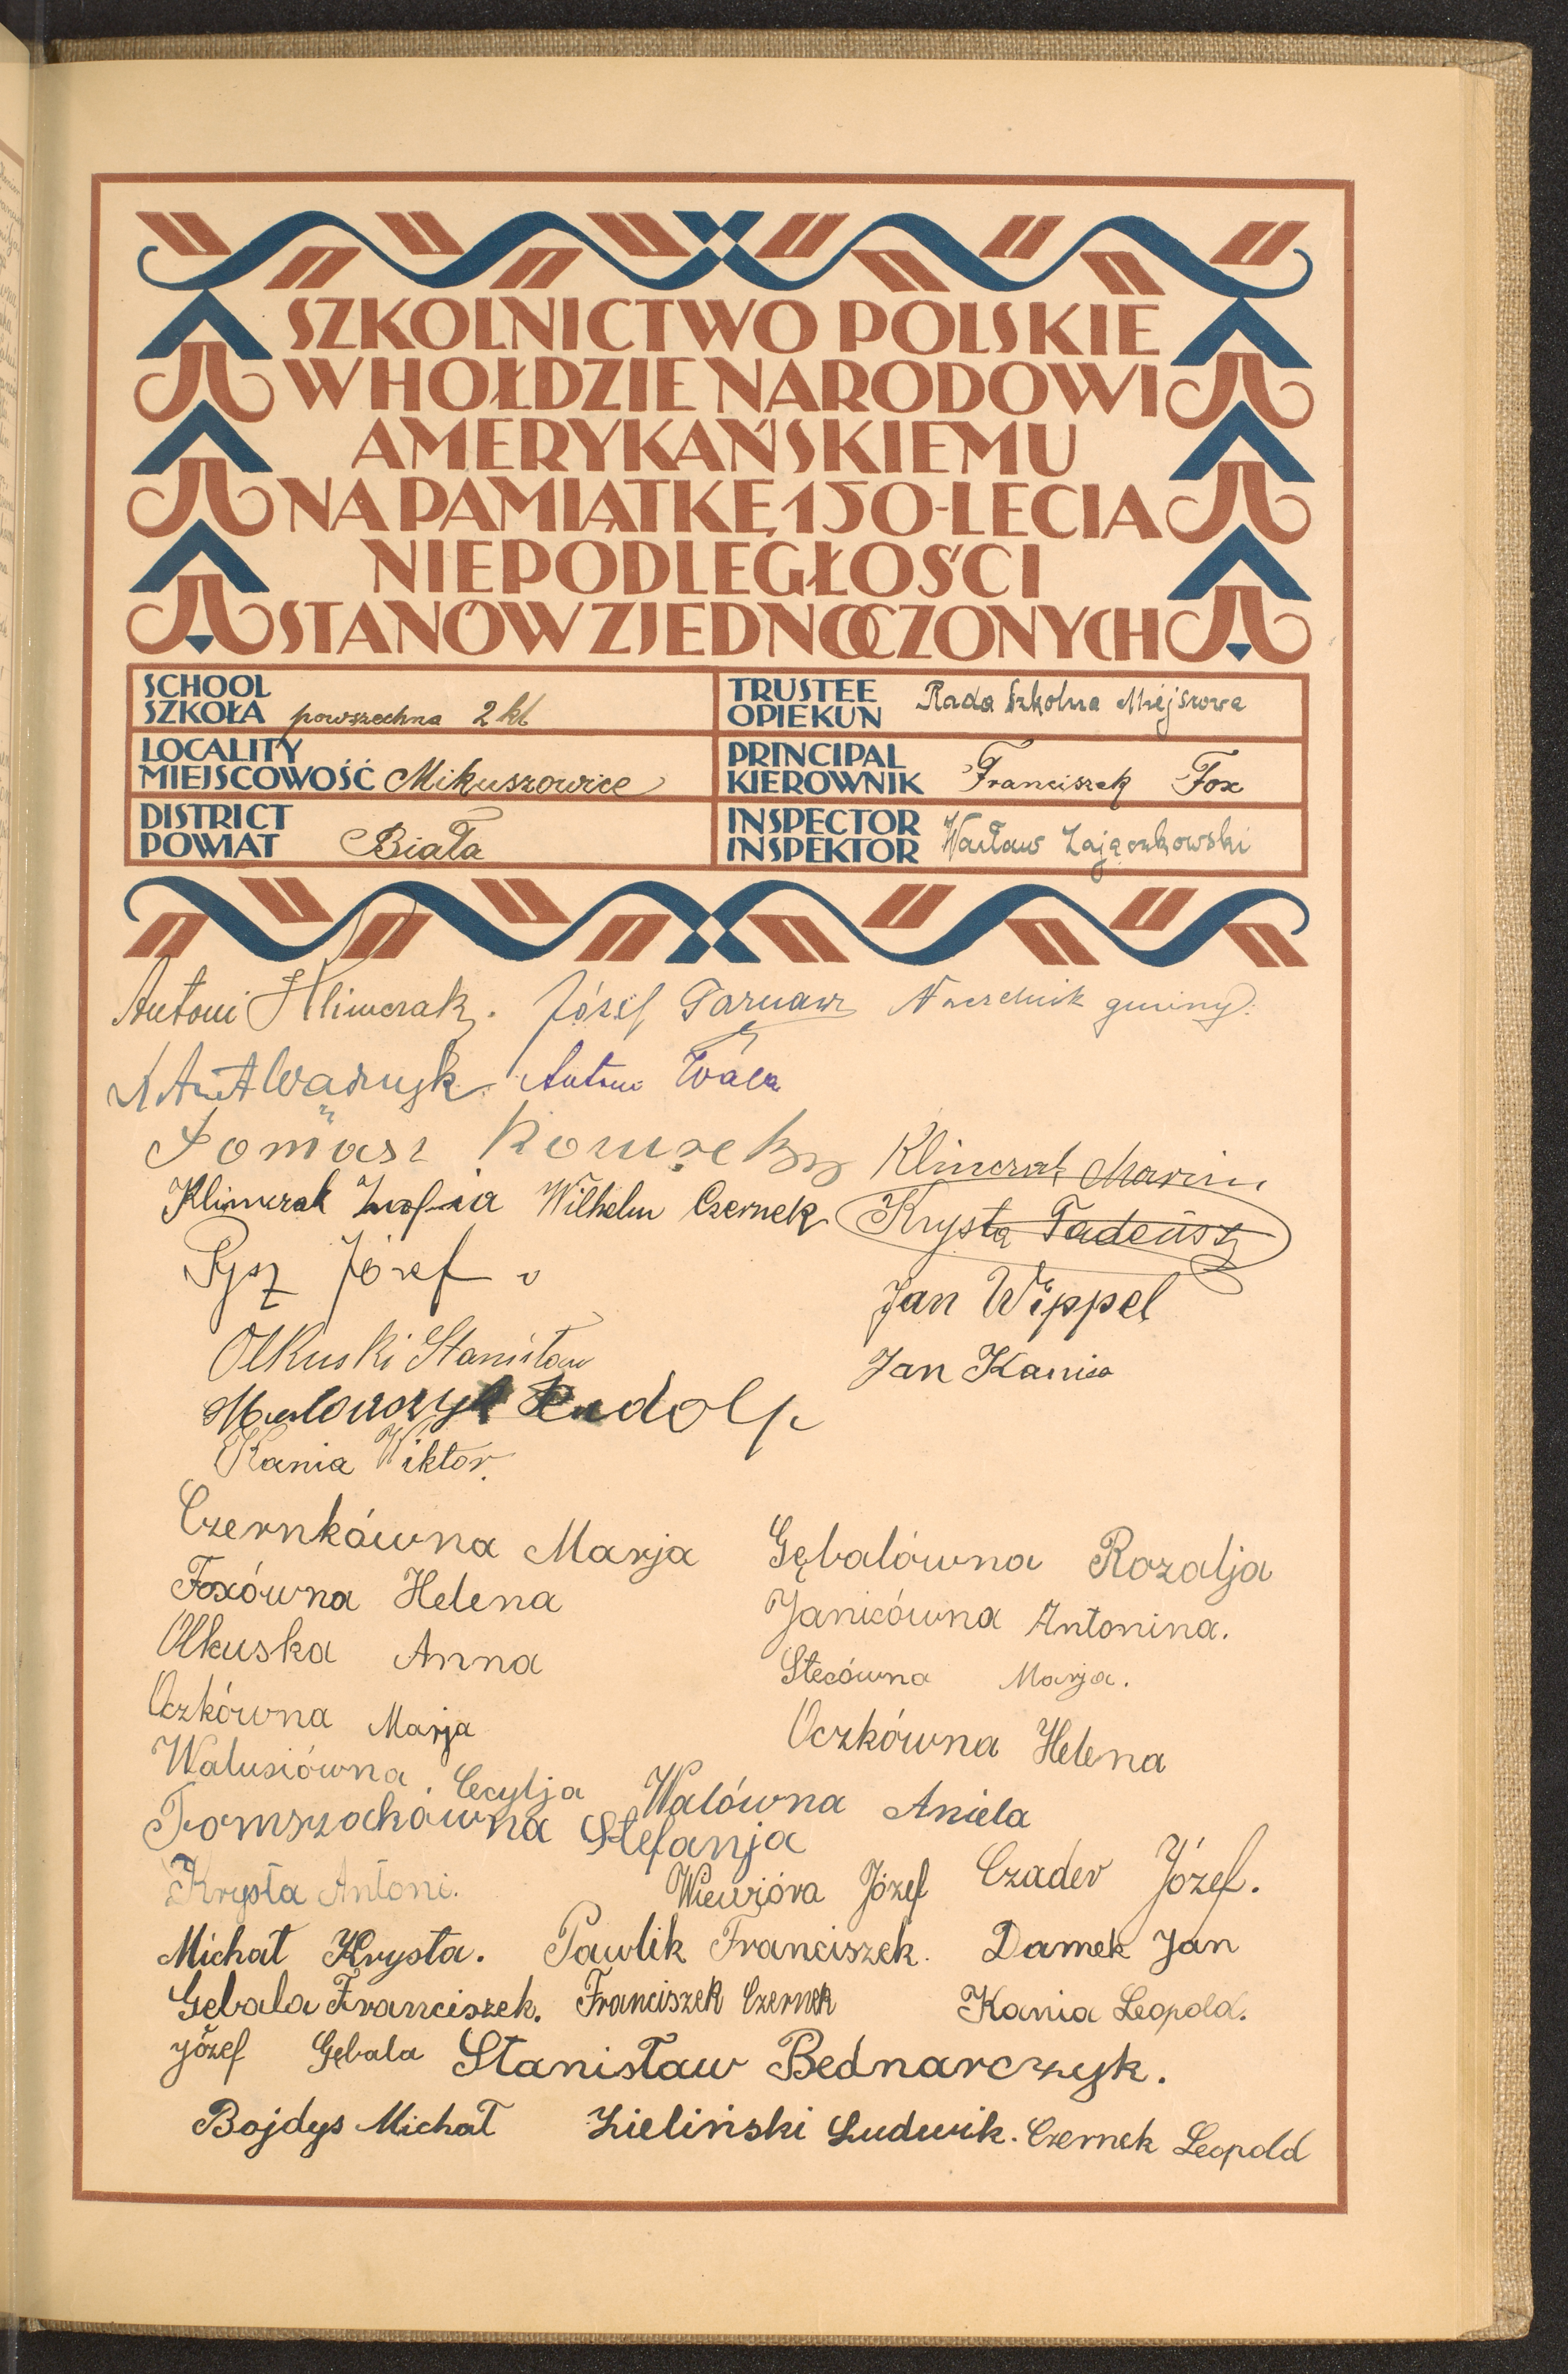 SZKOLNICTWO POLSKIE
W HOŁDZIE NARODOWI
AMERYKAŃSKIEMU
NA PAMIĄTKĘ 150-LECIA
NIEPODLEGŁOŚCI
STANÓW ZJEDNOCZONYCH
SCHOOL
SZKOŁA powszechna 2 kl
TRUSTEE
OPIEKUN Rada Szkolna Miejscowa
LOCALITY
MIEJSCOWOŚĆ Mikuszowice
PRINCIPAL
KIEROWNIK Franciszek Fox
DISTRICT
POWIAT Biała
INSPECTOR
INSPEKTOR Wacław Zajączkowski
Antoni Klimczak. Józef Tarnawa Naczelnik gminy:
Antoni
Tomasz Klimczak Marin
Klimczak Zofia Wilhelm Czernek Krysta Tadeusz
Pysz Józef
Jan Wippel
Olkuski Stanisław
Jan Kania
Rudolf
Kania Wiktor.
Czernkówna Marja Gębalówna Rozalja
Foxówna Helena Janicówna Antonina.
Olkuska Anna Stecówna Marja.
Oczkówna Marja Oczkówna Helena
Walusiówna. Cecylja Walówna Aniela
Tomszackówna Stefanja
Krysta Antoni. Wiewióra Józef Czader Józef.
Michał Krysta. Pawlik Franciszek. Damek Jan
Gębala Franciszek. Franciszek Czernek Kania Leopold.
Józef Gębala Stanisław Bednarczyk.
Bojdys Michał Zieliński Ludwik. Czernek Leopold